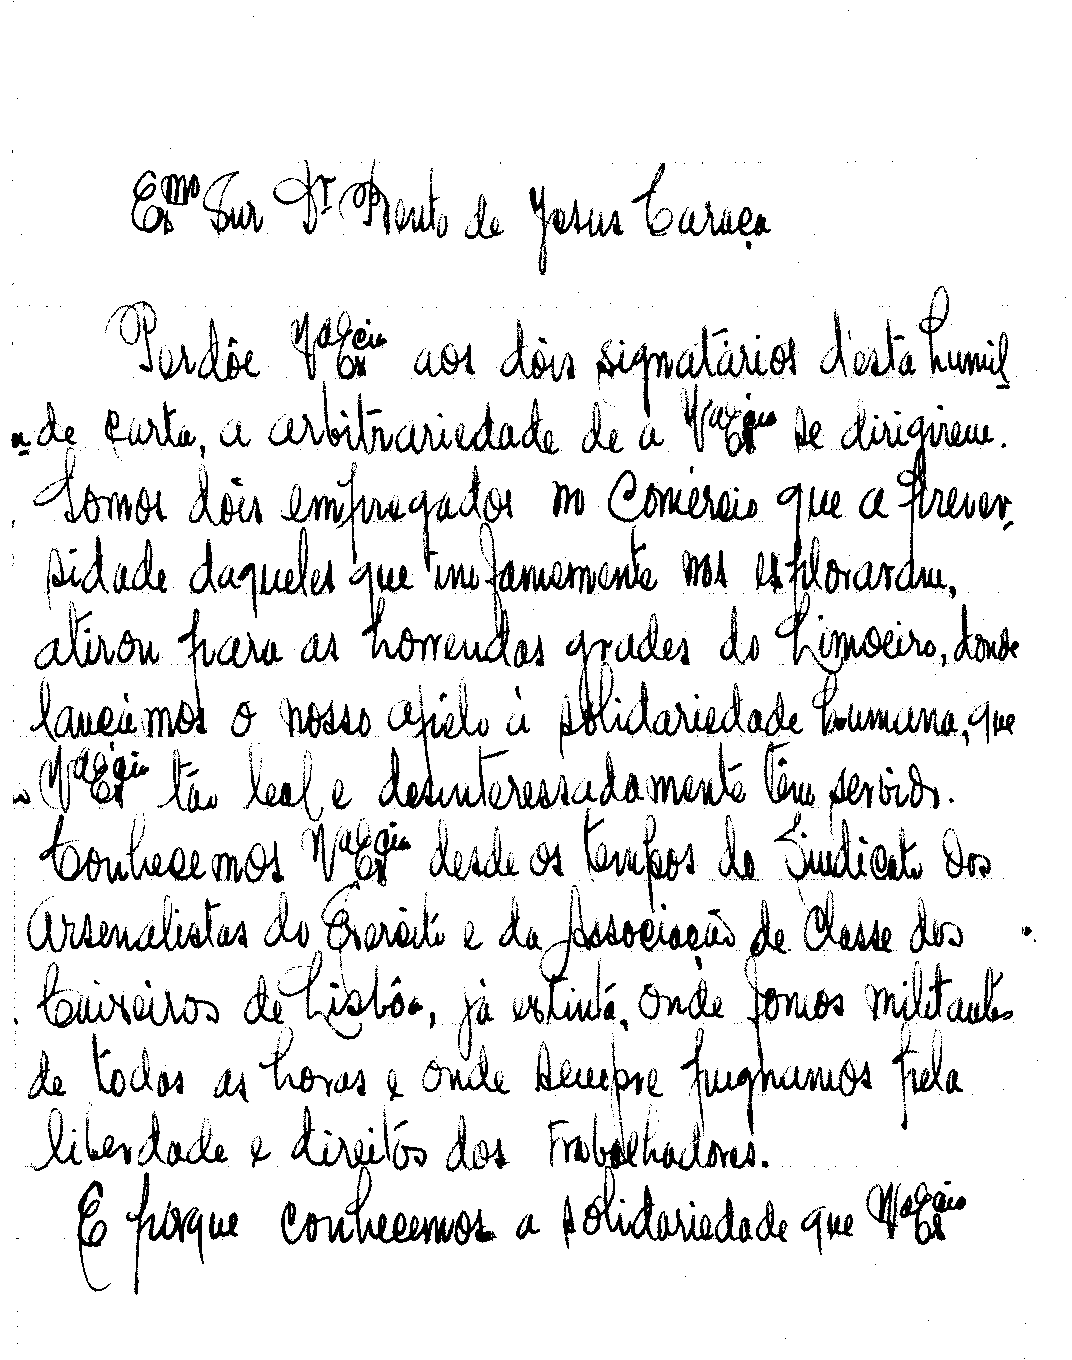 Exmo Snr Dr Bento de Jesus Caraça
Perdôe Va Excia aos dóis signatários désta humil
de carta, a arbitrariedade de a Va Excia se dirigirem.
Somos dóis empregados no Comércio que a prever-
sidade daqueles que infamemente nos exploraram,
atirou para as horrendas grades do Limoeiro, donde
lançâmos o nosso apêlo á solidariedade humana, que
Va Excia tão leal e desinteressadamente têm servido.
Conhecemos Va Excia desde os tempos do Sindicato dos
Arsenalistas do Exercito e da Associação de Classe dos
Caixeiros de Lisbôa, já extinta, onde fomos militantes
de todas as horas e onde sempre pugnamos pela
liberdade e direitos dos Trabalhadores.
E porque conhecemos a solidariedade que Va Excia